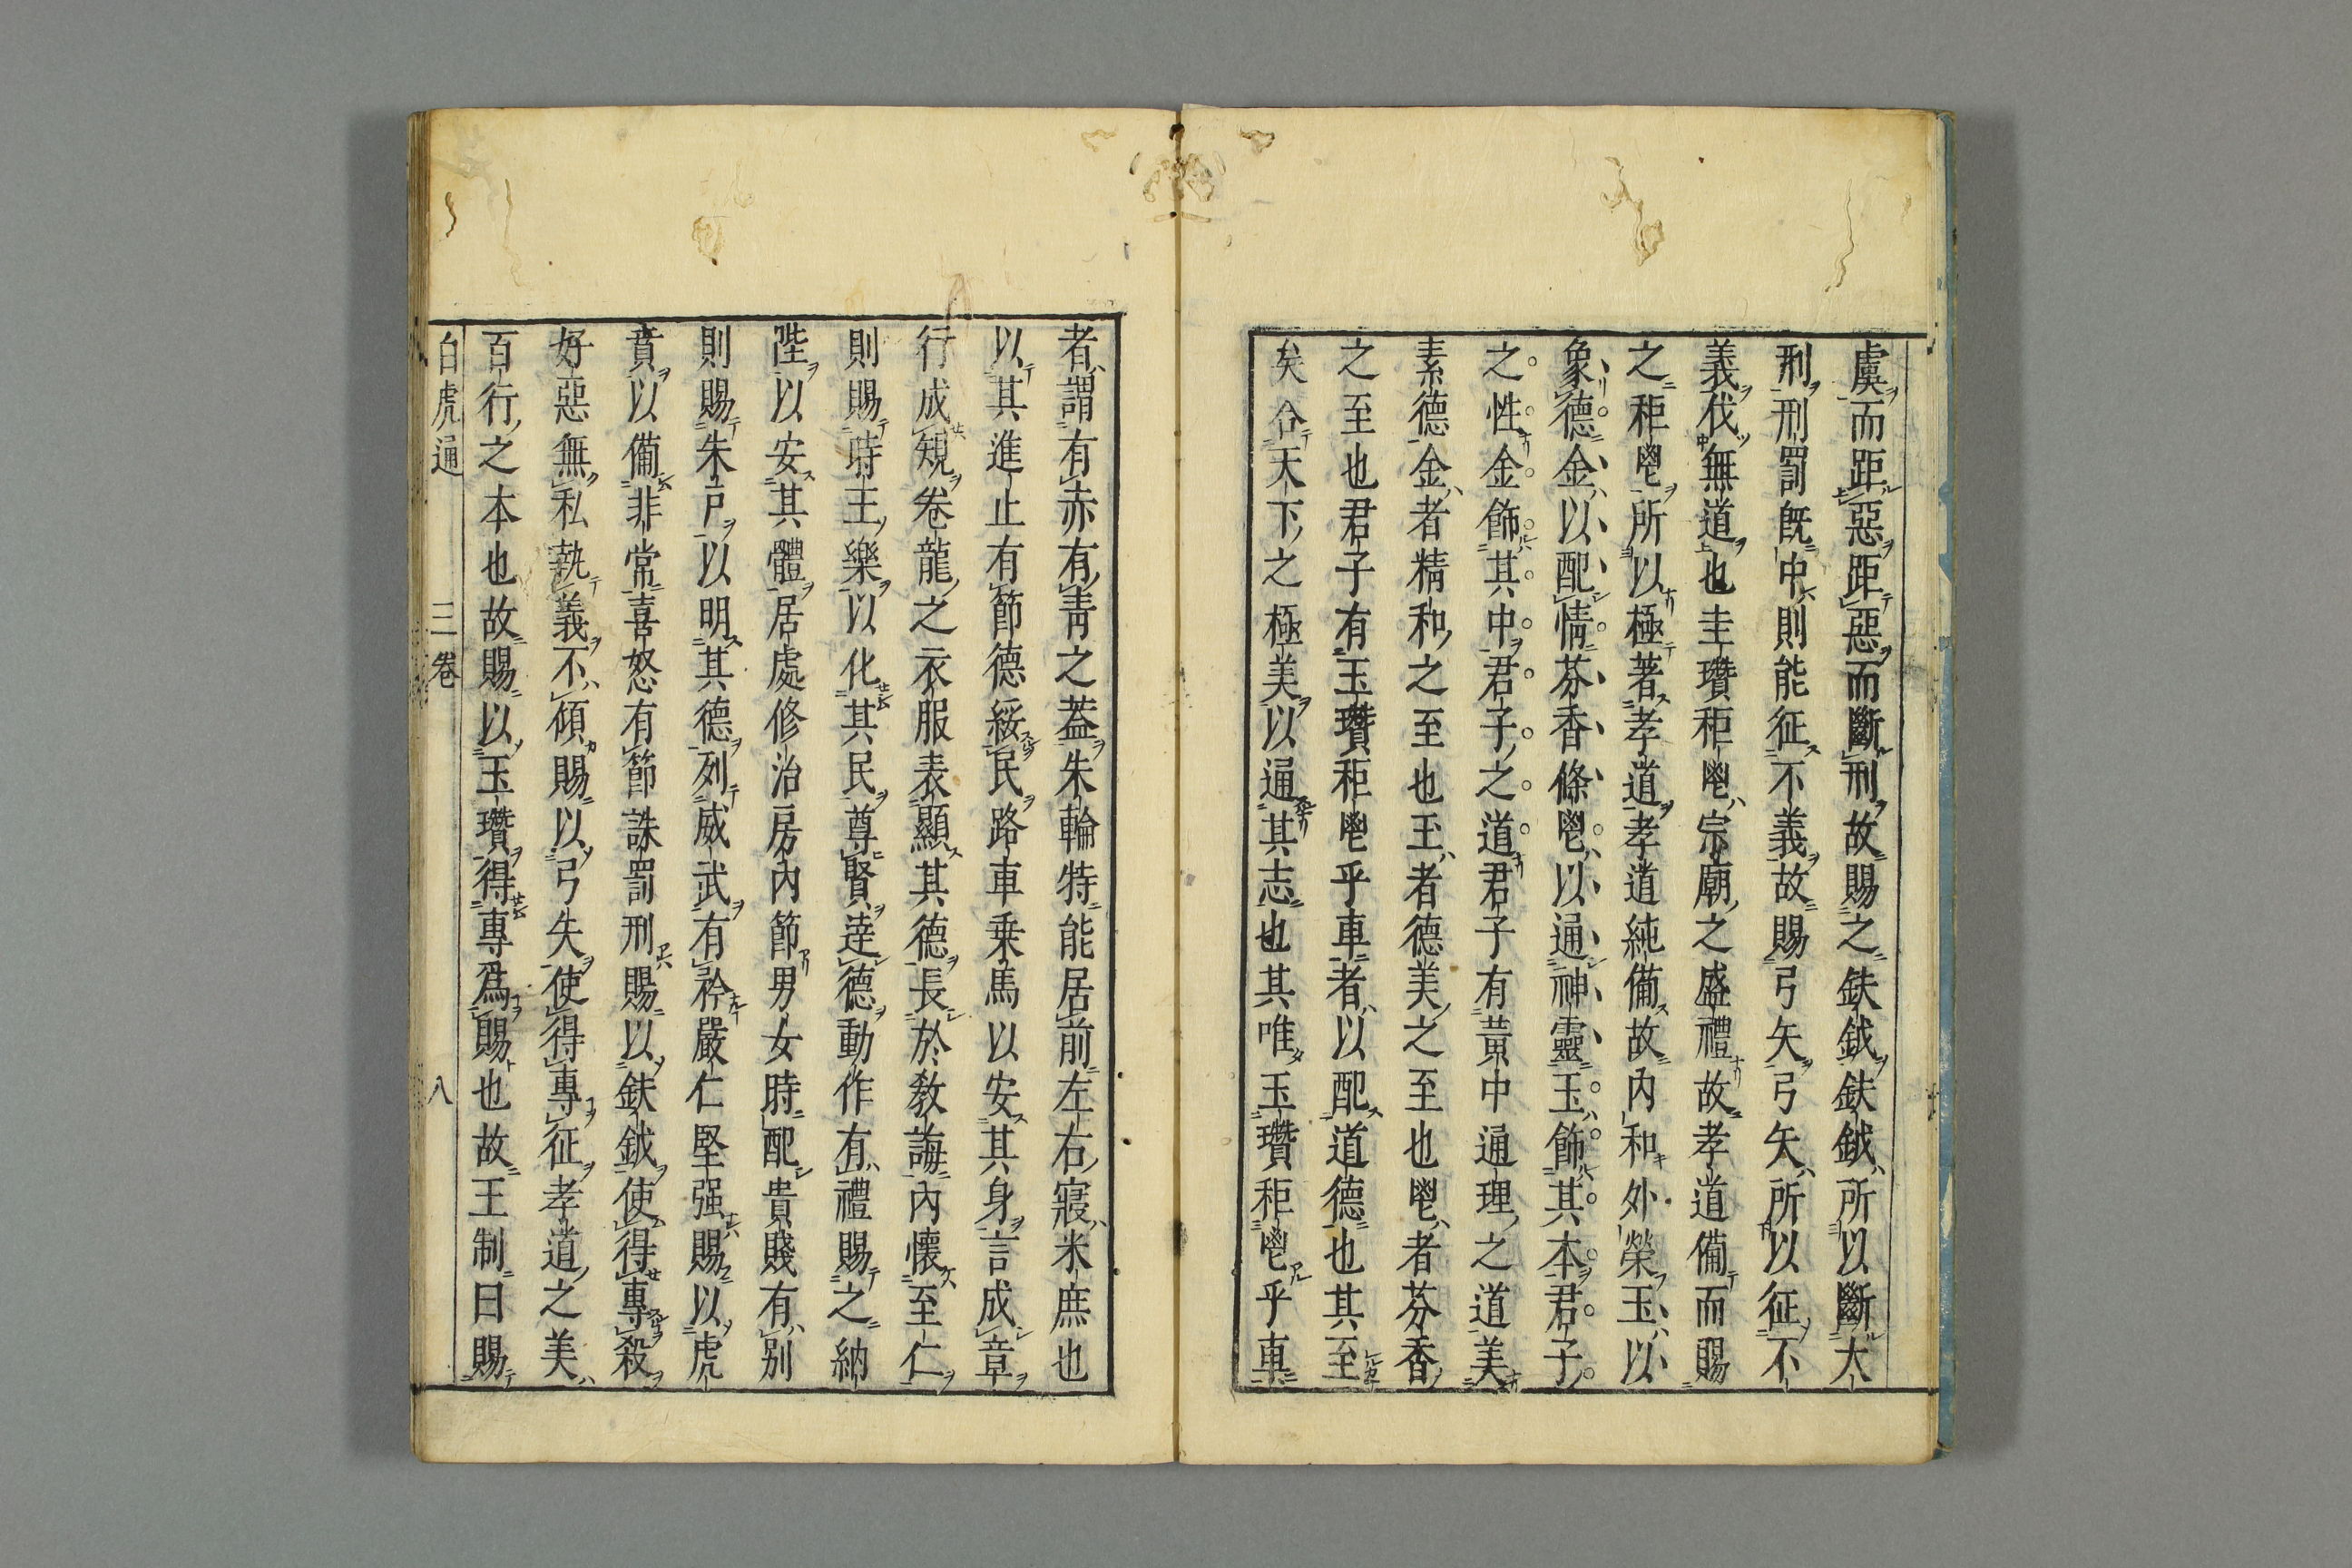 虞而距惡距惡而斷刑故賜之鈇鉞鈇鉞所以斷大
刑刑罰既中則能征不義故賜弓矢弓矢所以征不
義伐無道也圭瓚秬鬯宗廟之盛禮故孝道備而賜
之秬鬯所以極著孝道孝道純備故內和外榮玉以
象德金以配情芬香條鬯以通神靈玉飾其本君子
之性金飾其中君子之道君子有黃中通理之道美
素德金者精和之至也玉者德美之至也鬯者芬香
之至也君子有玉瓚秬鬯乎車者以配道德也其至
矣合天下之極美以通其志也其唯玉瓚秬鬯乎車
者謂有赤有青之蓋朱輪特能居前左右寢米庶也
以其進止有節德綏民路車乗馬以安其身言成章
行成規卷龍之衣服表顯其德長於敎誨內懷至仁
則賜時王樂以化其民尊賢達德動作有禮賜之納
陛以安其體居處修治房內節男女時配貴賤有別
則賜朱戸以明其德列威武有矜嚴仁堅强賜以虎
賁以備非常喜怒有節誅罰刑賜以鈇鉞使得專殺
好惡無私執義不傾賜以弓矢使得專征孝道之美
百行之本也故賜以玉瓚得專爲賜也故王制曰賜
白虎通　三卷　八